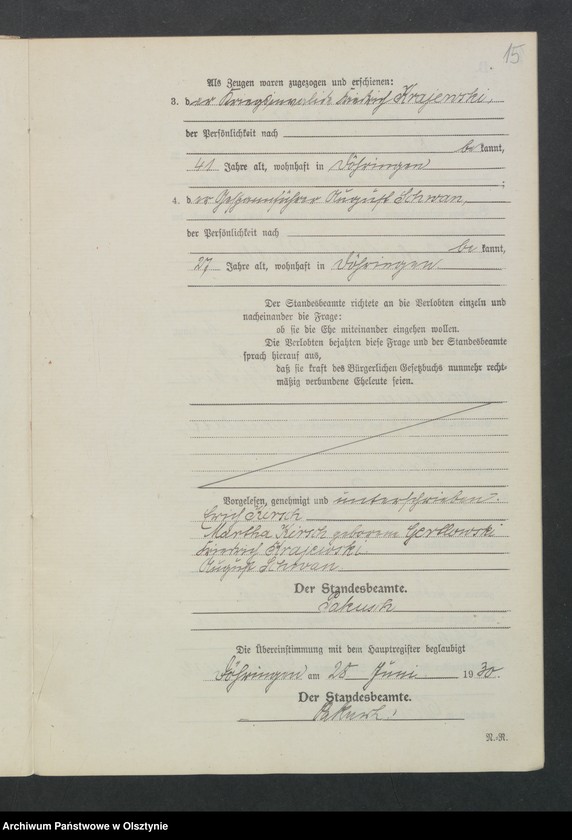 15
Als Zeugen waren zugezogen und erschienen:
3. der Kriegsinvalide Friedrich Krajewski,
der Persönlichkeit nach
bekannt,
41 Jahre alt, wohnhaft in Döhringen
;
4. der Gespannführer August Schwan,
der Persönlichkeit nach
bekannt,
27 Jahre alt, wohnhaft in Döhringen
Der Standesbeamte richtete an die Verlobten einzeln und
nacheinander die Frage:
ob sie die Ehe miteinander eingehen wollen.
Die Verlobten bejahten diese Frage und der Standesbeamte
sprach hierauf aus,
daß sie kraft des Bürgerlichen Gesetzbuchs nunmehr recht-
mäßig verbundene Eheleute seien.
Vorgelesen, genehmigt und unterschrieben.
Erich Kirsch
Martha Kirsch geborene Gertlowski
Friedrich Krajewski
August Schwan
Der Standesbeamte.
Die Übereinstimmung mit dem Hauptregister beglaubigt
Döhringen am 28 Juni 1930.
Der Standesbeamte.
N.-R.
Archiwum Państwowe w Olsztynie